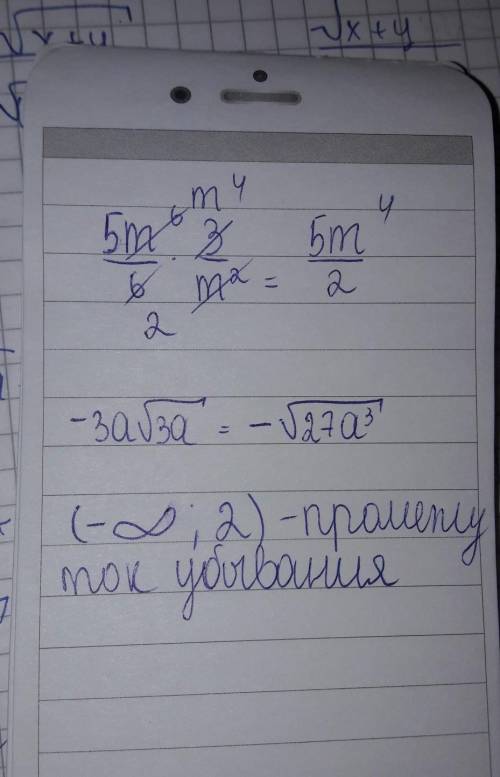 √x+y √x+y
5m⁶/6 · 3/m² = 5m⁴/2
m⁴
2
-3a√3a = -√27a³
(-∞; 2) - промежу
ток убывания